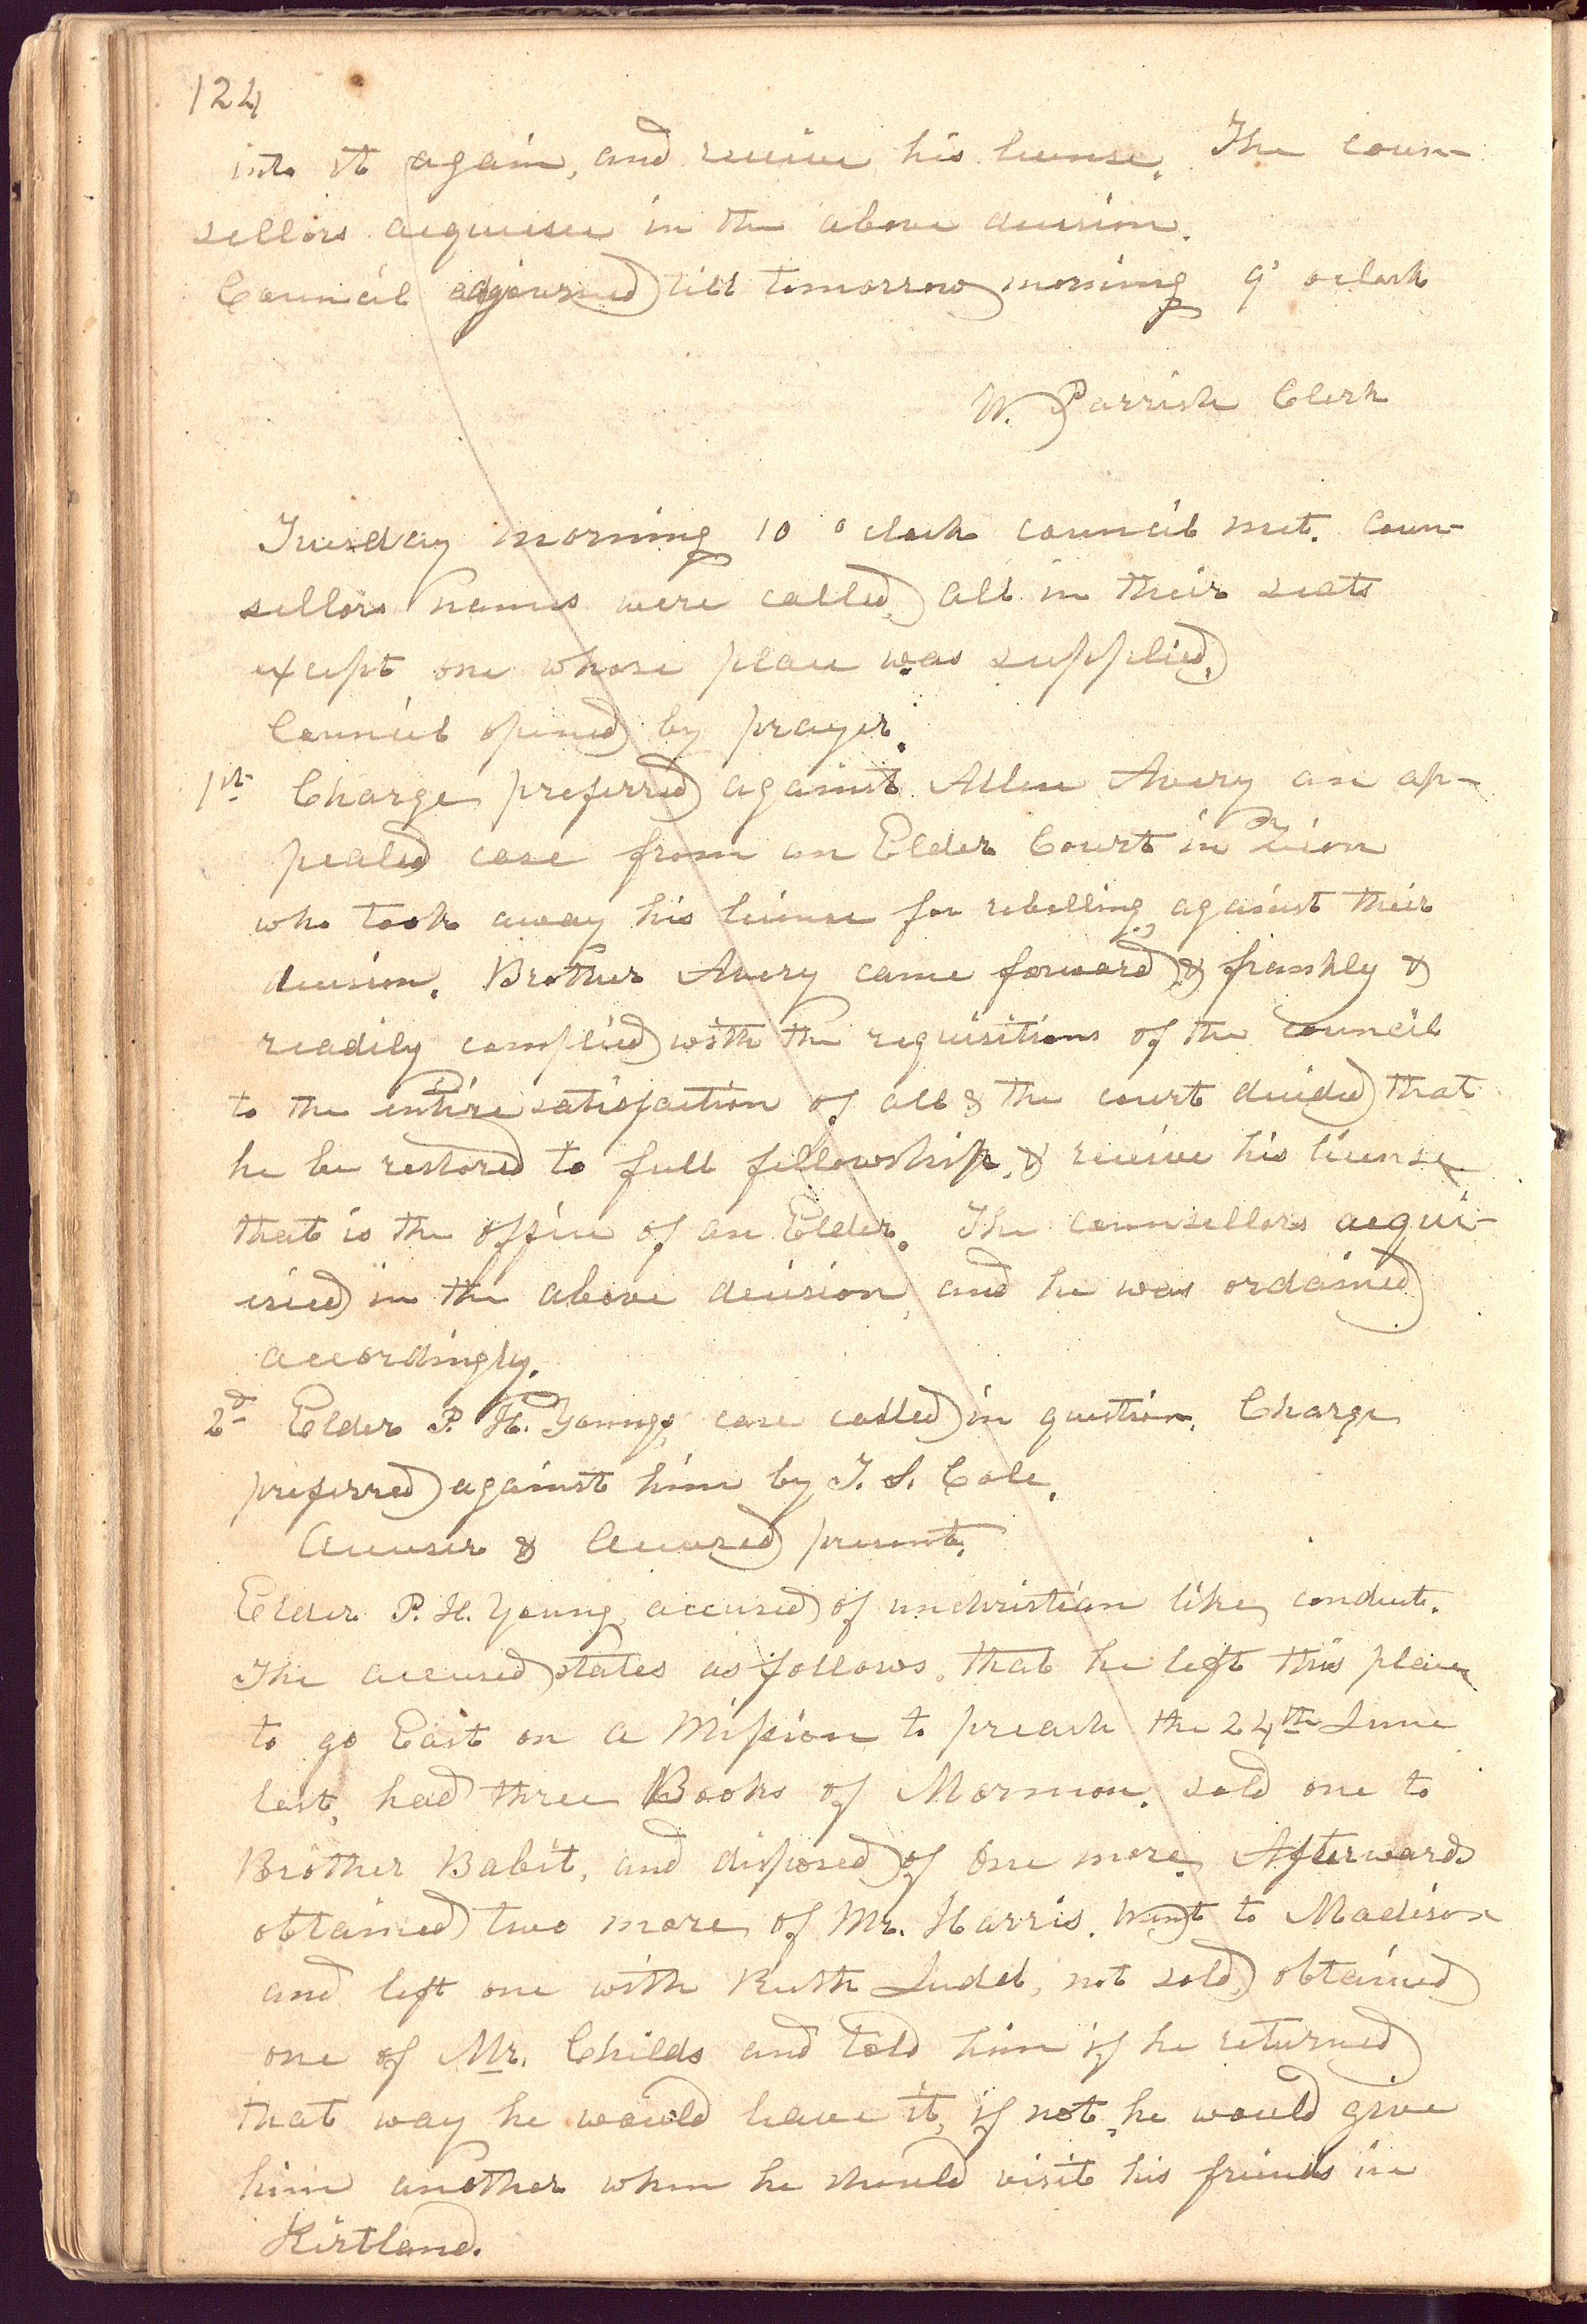 124
into it again, and receive his license. The coun-
sellors acquiesce in the above decision.
Council adjourned till tomorrow morning 9' oclock
W. Parrish Clerk
Tuesday morning 10 oclock council met. Coun-
sellors names were called, all in their seats
except one whose place was supplied.
Council opened by prayer.
1st Charge preferred against Allen Avery an ap-
pealed case from an Elder Court in Zion
who took away his license for rebelling against their
decision. Brother Avery came forward & frankly &
readily complied with the requisitions of the council
to the entire satisfaction of all & the court decided that
he be restored to full fellowship, & receive his license
that is the office of an Elder. The counsellors acqui-
esced in the above decision, and he was ordained
accordingly.
2d Elder P. H. Youngs case called in question. Charge
preferred against him by J. S. Cole.
Accuser & Accused present.
Elder P. H. Young, accused of unchristian like conduct.
The accused states as follows. that he left this place
to go East on a Mission to preach the 24th June
last, had three Books of Mormon. sold one to
Brother Babit, and disposed of one more. Afterwards
obtained two more of Mr. Harris. Went to Madison
and left one with Ruth Judd, not sold, obtained
one of Mr. Childs and told him if he returned
that way he would leave it, if not, he would give
him another when he should visit his friends in
Kirtland.